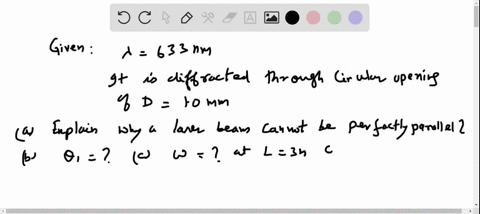 Given: λ = 633 nm
It is diffracted through Circular opening
of D = 10 mm
(a) Explain why a laser beam cannot be perfectly parallel?
(b) θ₁ = ? (c) w = ? at L = 3m C